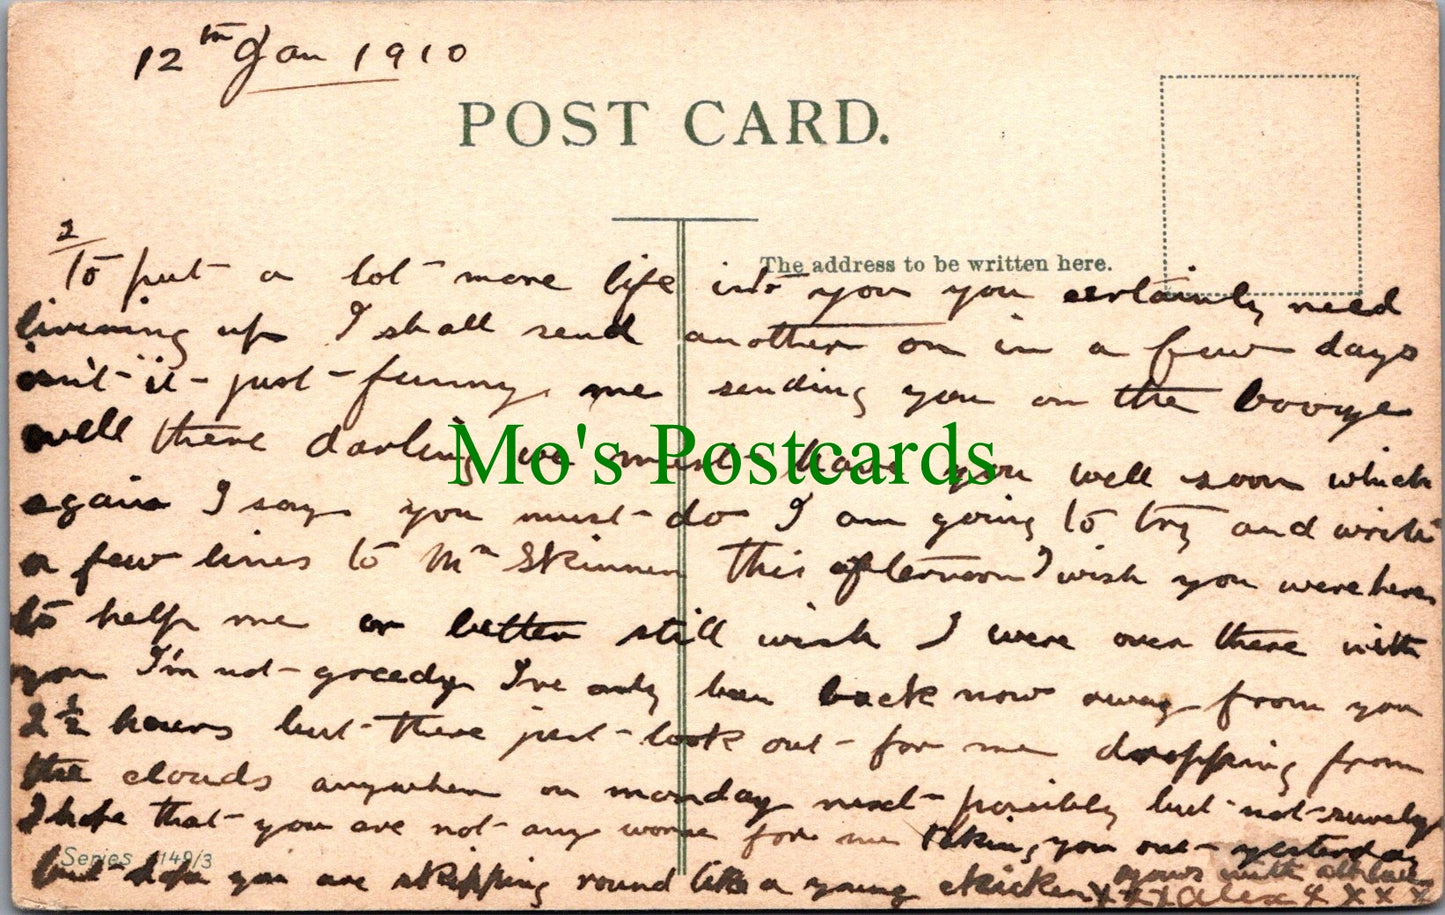 12th Jan 1910
POST CARD.
2
The address to be written here.
To put a lot more life into you you certainly need
livening up I shall send another on in a few days
isn't it just funny me sending you on the booze
well there darling we must have you well soon which
again I say you must do I am going to try and write
a few lines to Mrs Skinner this afternoon I wish you were here
to help me or better still wish I were over there with
you I'm not greedy I've only been back now away from you
2 1/2 hours but there just look out for me dropping from
the clouds anywhere on monday next possibly but not surely
I hope that you are not any worse for me taking you out yesterday
but hope you are skipping round like a young chicken
yours with all love
x x x Alex x x x x
Series 149/3
Mo's Postcards